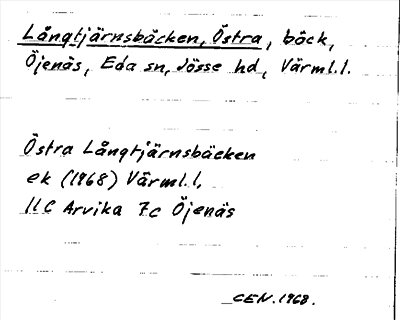 Långtjärnsbäcken, Östra, bäck,
Öjenäs, Eda sn, Jösse hd, Värml.l.
Östra Långtjärnsbäcken
ek (1968) Värml.l,
11C Arvika 7c Öjenäs
CEN.1968.